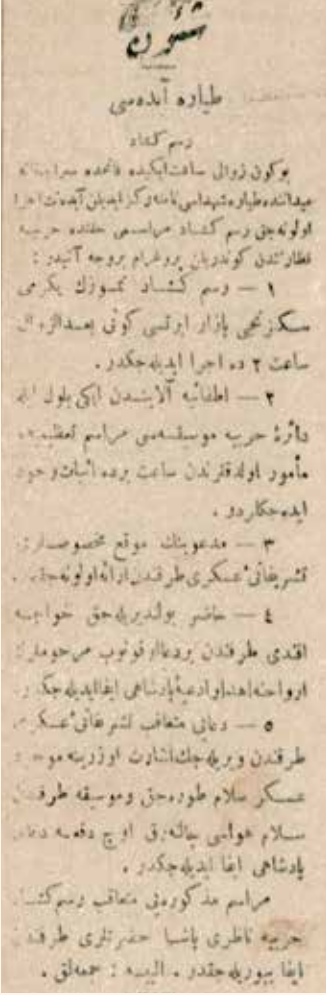 شئون
طیاره آبده‌سی
رسم كشاد
بوكون زوالی ساعت ایكیده فاتحده
میداننده طیاره شهداسی نامنه ركز ایدیلن آبده‌نك اجرا
اولونه‌جق رسم كشاد مراسمی حقنده حربیه
نظارتندن كوندریلن پروغرام بروجه آتیدر :
١ — رسم كشاد تموزك یكرمی
سكزنجی بازار ایرتسی كونی بعدالزوال
ساعت ٢ ده اجرا ایدیله‌جكدر .
٢ — اطفائیه آلایندن ایكی بلوك ایله
دائرهٔ حربیه موسیقه‌سی مراسم تعظیمیه‌یه
مأمور اولدقلرندن ساعت برده اثبات وجود
ایده‌جكلردر .
٣ — مدعوینك موقع مخصوصلری
تشریفاتیٔ عسكری طرفندن ارائه اولونه‌جقدر .
٤ — حاضر بولندیریله‌جق خواجه
افندی طرفندن بر دعا اوقونوب مرحوملرك
ارواحنه اهدا و ادعیهٔ پادشاهی ایفا ایدیله‌جكدر .
٥ — دعایی متعاقب تشریفاتیٔ عسكری
طرفندن ویریله‌جك اشارت اوزرینه موجود
عسكر سلام طوره‌جق وموسیقه طرفندن
سلام هواسی چاله‌رق اوچ دفعه دعای
پادشاهی ایفا ایدیله‌جكدر .
مراسم مذكوره‌یی متعاقب رسم كشاد
حربیه ناظری پاشا حضرتلری طرفندن
ایفا بیوریله‌جقدر . البسه : جمعه‌لق .